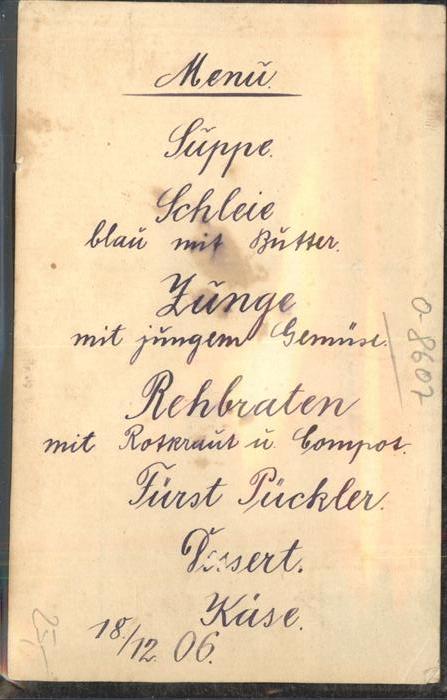 Menü.
Suppe.
Schleie
blau mit Butter.
Zunge
mit jungem Gemüse.
Rehbraten
mit Rotkraut u. Compot.
Fürst Pückler.
Dessert.
Käse.
18./12. 06.
0-8607
25,-